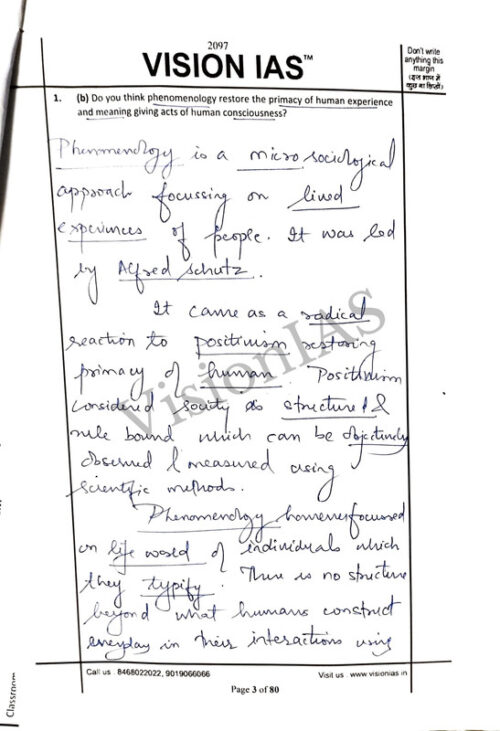 2097
VISION IAS™
Don't write
anything this
margin
(इस भाग में
कुछ ना लिखें)
1. (b) Do you think phenomenology restore the primacy of human experience
and meaning giving acts of human consciousness?
Phenomenology is a micro sociological
approach focussing on lived
experiences of people. It was led
by Alfred Schutz.
It came as a radical
reaction to positivism restoring
primacy of human. Positivism
considered society as structured &
rule bound which can be objectively
observed & measured using
scientific methods.
Phenomenology however focussed
on life world of individuals which
they typify. There is no structure
beyond what humans construct
everyday in their interactions using
VisionIAS
Call us : 8468022022, 9019066066
Visit us : www.visionias.in
Page 3 of 80
Classroom